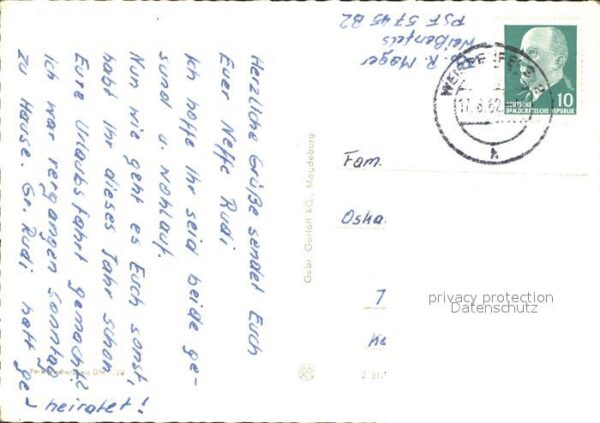 Herzliche Grüße sendet Euch
Euer Neffe Rudi
Ich hoffe Ihr seid beide ge-
sund u. wohlauf.
Nun wie geht es Euch sonst,
habt Ihr dieses Jahr schon
Eure Urlaubsfahrt gemacht?
ich war vergangen Sonntag
zu Hause. Gr. Rudi hatt ge-
heiratet!
R. Mager
Weißenfels
PSF 5745 B2
DEUTSCHE
DEMOKRATISCHE REPUBLIK
10
17.8.62
h
Gebr. Garloff KG., Magdeburg
Fam.
Oska.
7
privacy protection
Datenschutz